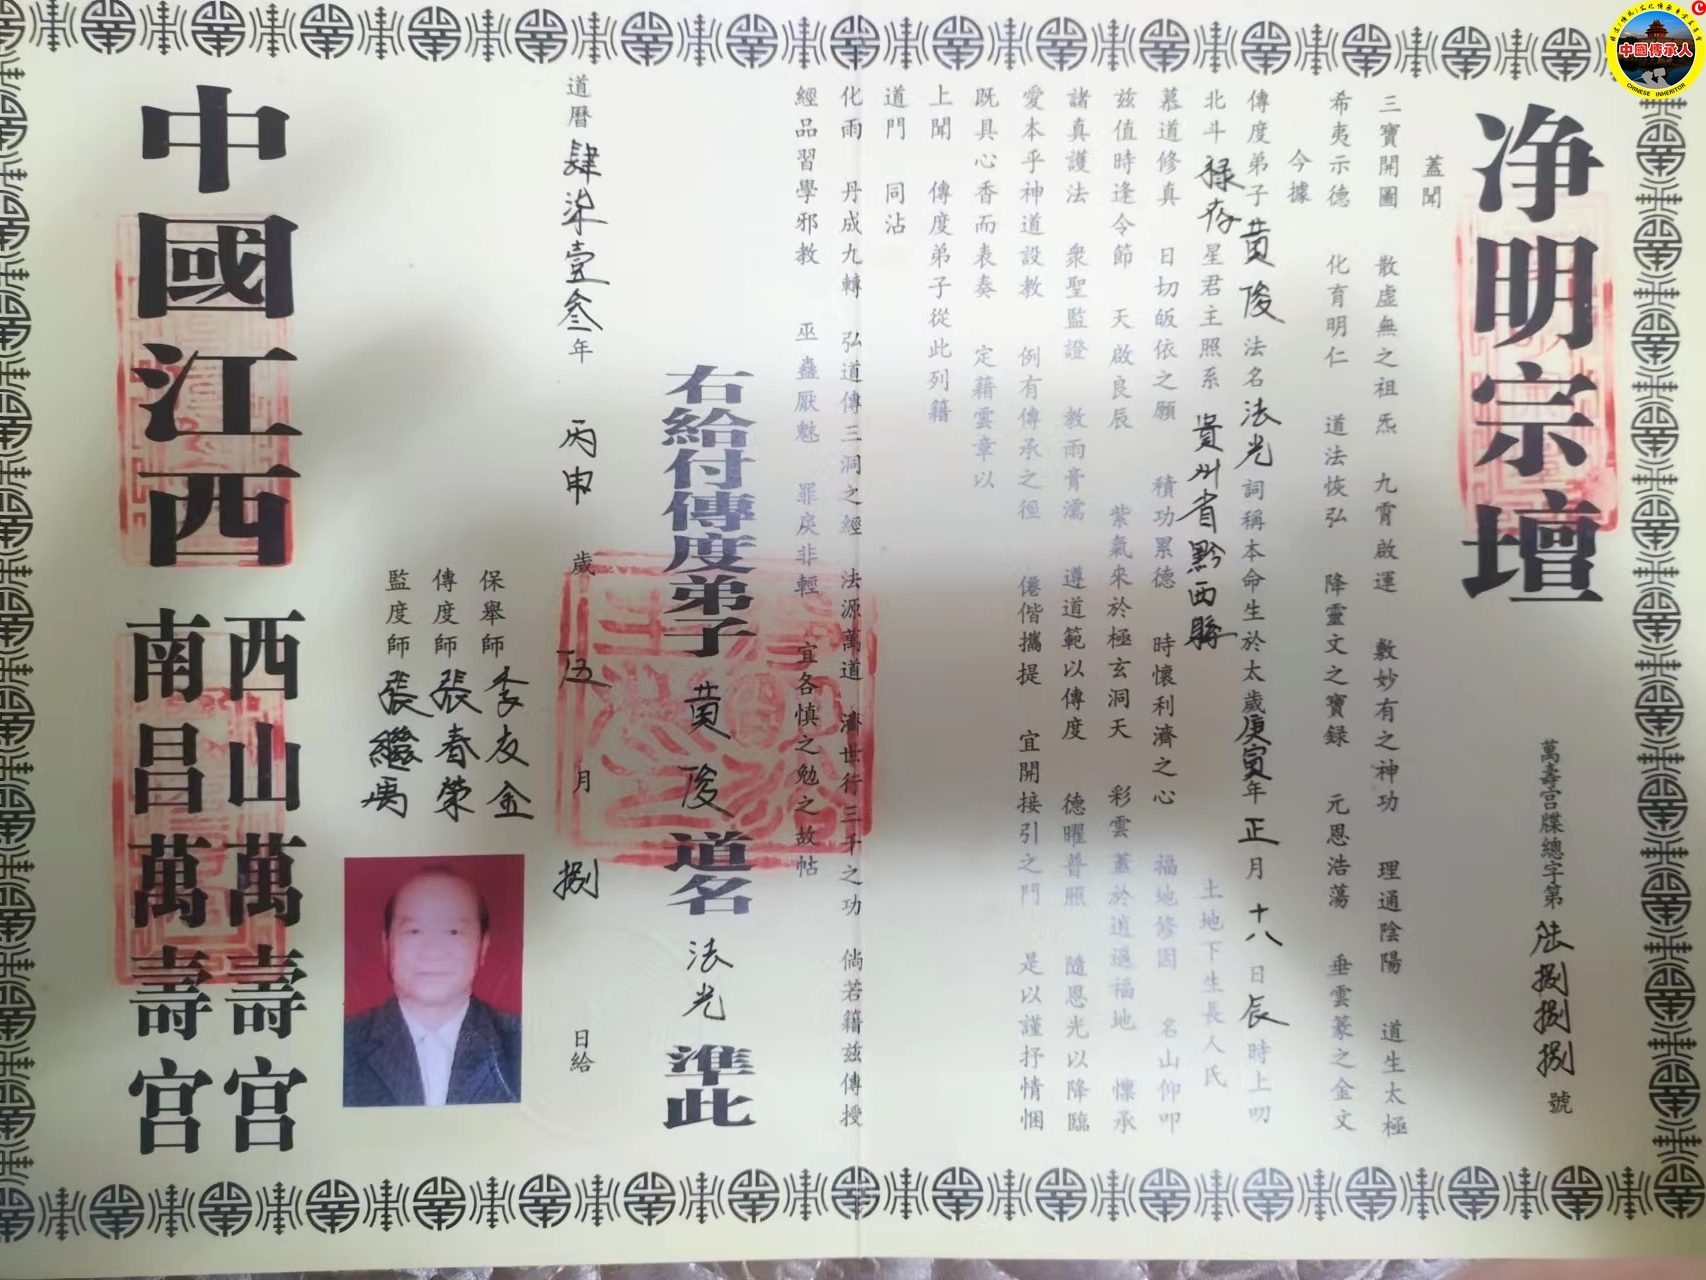 净明宗壇
萬壽宫牒總字第陆捌捌捌號
蓋聞
三寶開圖 散虚無之祖炁 九霄啟運 敷妙有之神功 理通陰陽 道生太極
希夷示德 化育明仁 道法恢弘 降靈文之寶録 元恩浩蕩 垂雲篆之金文
今據
傳度弟子黄俊法名法光詞稱本命生於太歲庚寅年正月十八日辰時上叨
北斗禄存星君主照系貴州省黔西縣土地下生長人氏
慕道修真 日切皈依之願 積功累德 時懷利濟之心 福地修因 名山仰叩
兹值時逢令節 天啟良辰 紫氣來於極玄洞天 彩雲蓋於逍遥福地 懍承
諸真護法 衆聖監證 教雨膏濡 遵道範以傳度 德曜普照 隨恩光以降臨
愛本乎神道設教 例有傳承之徑 僊偕攜提 宜開接引之門 是以謹抒情悃
既具心香而表奏 定藉雲章以
上聞 傳度弟子從此列籍
道門 同沾
化雨 丹成九轉 弘道傳三洞之經 法源萬道 濟世行三千之功 倘若籍兹傳授
經品習學邪教 巫蠱厭魅 罪戾非輕 宜各慎之勉之故帖
右給付傳度弟子黄俊道名法光準此
道曆肆柒壹叁年 丙申歲伍月捌日給
保舉師李友金
傳度師張春榮
監度師張繼禹
中國江西
西山萬壽宫
南昌萬壽宫
中國傳承人
CHINESE INHERITOR